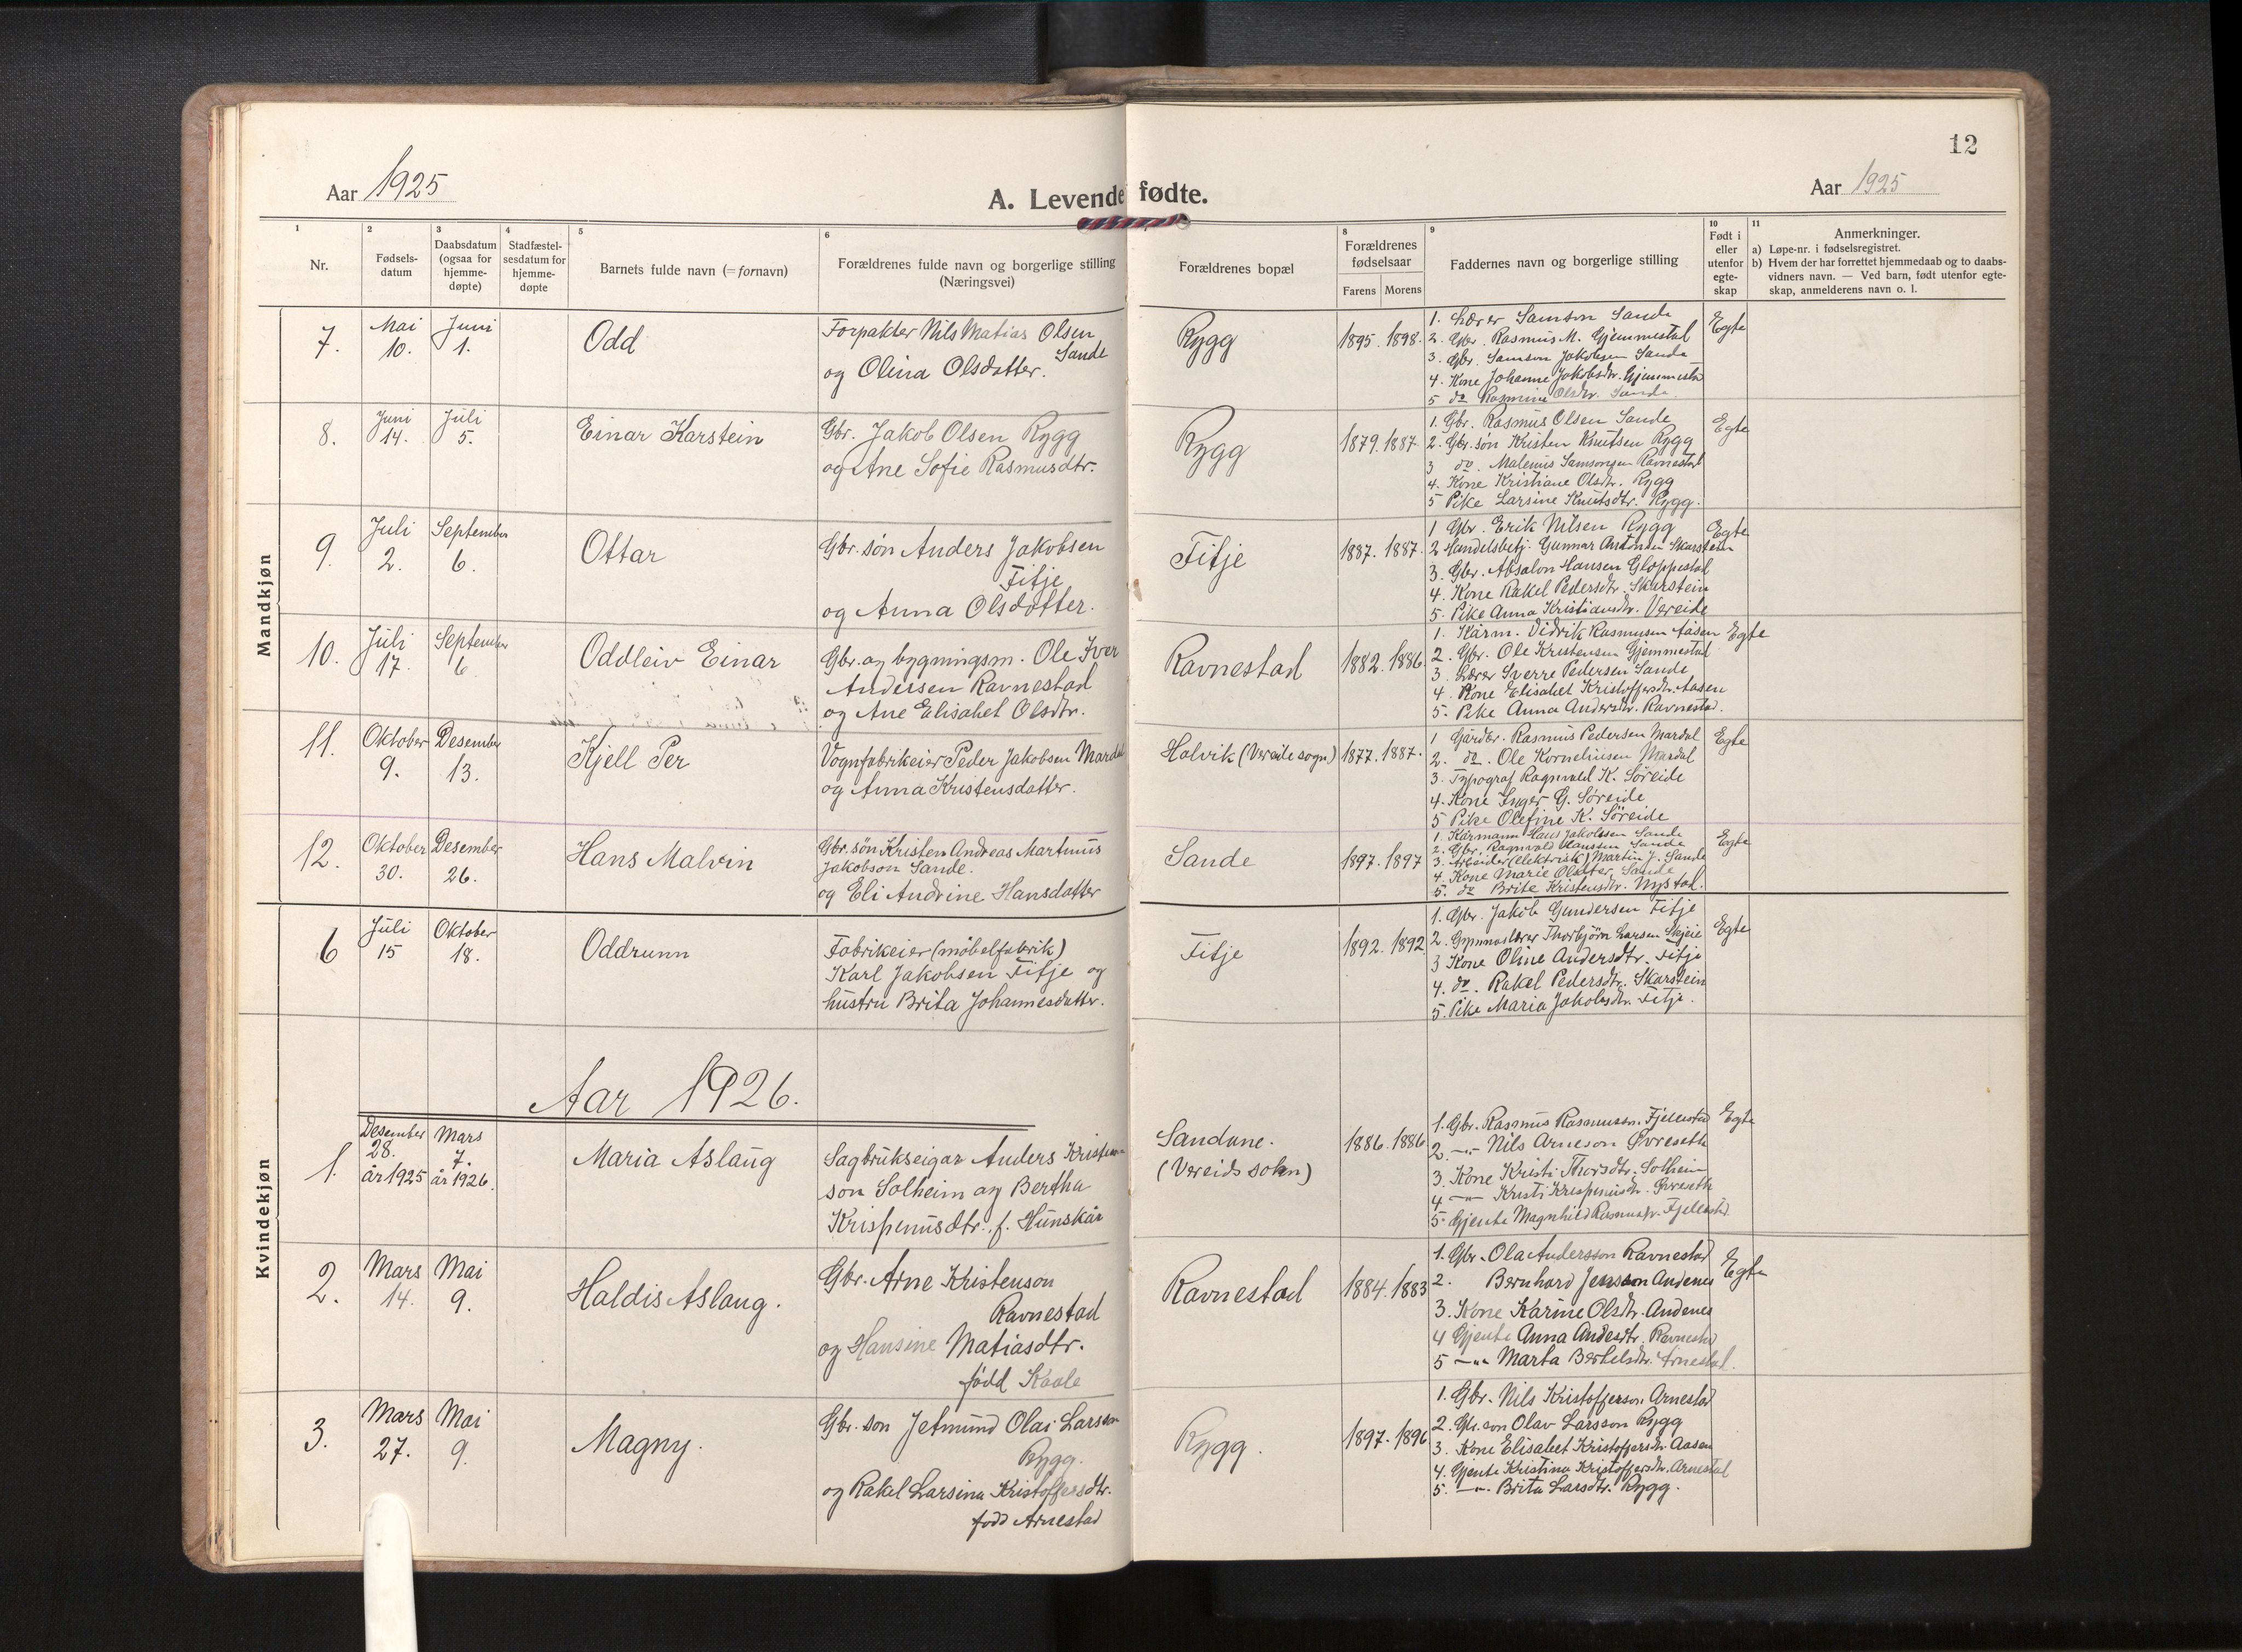 12
Aar 1925
A. Levende fødte.
Aar 1925
1
Nr.
2
Fødsels-
datum
3
Daabsdatum
(ogsaa for
hjemme-
døpte)
4
Stadfæstel-
sesdatum for
hjemme-
døpte
5
Barnets fulde navn (= fornavn)
6
Forældrenes fulde navn og borgerlige stilling
(Næringsvei)
Forældrenes bopæl
8
Forældrenes
fødselsaar
Farens
Morens
9
Faddernes navn og borgerlige stilling
10
Født i
eller
utenfor
egte-
skap
11
Anmerkninger.
a) Løpe-nr. i fødselsregistret.
b) Hvem der har forrettet hjemmedaab og to daabs-
vidners navn. — Ved barn, født utenfor egte-
skap, anmelderens navn o. l.
Mandkjøn
7.
Mai
10.
Juni
1.
Odd
Forpakter Nils Matias Olsen
Sande
og Olina Olsdatter.
Rygg
1895. 1898.
1. Lærer Samson Sande
2. Gbr. Rasmus M. Gjemmestad
3. Gbr. Samson Jakobsen Sande
4. Kone Johanne Jakobsdtr. Gjemmestd
5 do Rasmine Olsdtr. Sande
Egte
8.
Juni
14.
Juli
5.
Einar Karstein
Gbr. Jakob Olsen Rygg
og Ane Sofie Rasmusdtr.
Rygg
1879. 1887
1. Gbr. Rasmus Olsen Sande
2. Gbr. søn Kristen Knutsen Rygg
3 do. Malenius Samsonsen Ravnestad
4. Kone Kristiane Olsdtr. Rygg
5 Pike Larsine Knutsdtr. Rygg.
Egte
9.
Juli
2.
September
6.
Ottar
Gbr. søn Anders Jakobsen
Fitje
og Anna Olsdatter.
Fitje
1887. 1887.
1 Gbr. Erik Nilsen Rygg
2 Handelsbetj. Gunnar Antonsen Skarstein
3. Gbr. Absalon Hansen Gloppestad
4. Kone Rakel Pedersdtr. Skarstein
5. Pike Anna Kristiansdtr. Vereide
Egte
10.
Juli
17.
September
6
Oddleiv Einar
Gbr. og bygningsm. Ole Iver
Andersen Ravnestad
og Ane Elisabet Olsdtr.
Ravnestad
1882. 1886
1. Kårm. Didrik Rasmusen Aasen
2. Gbr. Ole Kristensen Gjemmestad
3. Lærer Sverre Pedersen Sande
4. Kone Elisabet Kristoffersdtr. Aasen
5. Pike Anna Andersdtr. Ravnestad.
Egte
11.
Oktober
9.
Desember
13.
Kjell Per
Vognfabrikeier Peder Jakobsen Mardal
og Anna Kristensdatter.
Holvik (Vereide sogn)
1877. 1887.
1 Gårdbr. Rasmus Pedersen Mardal
2. do. Ole Korneliusen Mardal
3. Typograf Ragnvald K. Søreide
4. Kone Inger G. Søreide
5 Pike Olefine K. Søreide
Egte
12.
Oktober
30.
Desember
26.
Hans Malvin
Gbr. søn Kristen Andreas Martinus
Jakobson Sande.
og Eli Andrine Hansdatter
Sande
1897. 1897
1. Kårmann Hans Jakobsen Sande
2. Gbr. Ragnvald Hansen Sande
3. Arbeider (elektrisk) Martin J. Sande
4. Kone Marie Olsdter Sande
5. do Brite Kristensdtr. Nystad.
Egte
Kvindekjøn
6
Juli
15
Oktober
18.
Oddrunn
Fabrikeier (møbelfabrik)
Karl Jakobsen Fitje og
hustru Brita Johannesdatter.
Fitje
1892. 1892
1. Gbr. Jakob Gundersen Fitje
2. Gymnaslærer Thorbjørn Larsen Skjeie
3 Kone Oline Andersdtr. Fitje
4. do. Rakel Pedersdtr. Skarstein
5. Pike Maria Jakobsdtr. Fitje.
Egte
Aar 1926.
1.
Desember
28.
år 1925
Mars
7.
år 1926.
Maria Aslaug
Sagbrukseigar Anders Kristen-
son Solheim og Bertha
Krispinusdtr. f. Hunskår
Sandane.
(Vereids sokn)
1886. 1886
1. Gbr. Rasmus Rasmussn. Fjellestad
2. -"- Nils Arneson Øvreseth
3. Kone Kristi Thorsdtr. Solheim
4 -"- Kristi Krispinusdtr. Øvreseth
5. Gjente Magnhild Rasmusdtr. Fjellestad
Egte
2.
Mars
14.
Mai
9.
Haldis Aslaug.
Gbr. Arne Kristenson
Ravnestad
og Hansine Matiasdtr.
født Kaale
Ravnestad
1884. 1883
1. Gbr. Ola Andersson Ravnestad
2. Bernhard Jensson Andenes
3. Kone Karine Olsdtr. Andenes
4 Gjente Anna Andersdtr. Ravnestad
5 -"- Marta Bertelsdtr. Arnestad.
Egte
3.
Mars
27.
Mai
9.
Magny.
Gbr. son Jetmund Olai Larsson
Rygg.
og Rakel Larsina Kristoffersdtr.
født Arnestad
Rygg.
1897. 1896
1. Gbr. Nils Kristofferson Arnestad
2. Gbr. son Olav Larsson Rygg
3. Kone Elisabet Kristoffersdtr. Aasen
4. Gjente Kristina Kristoffersdtr. Arnestad
5. -"- Brita Larsdtr. Rygg.